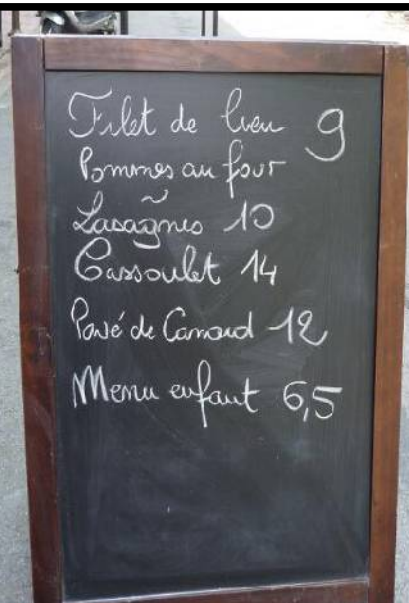 Filet de lieu 9
Pommes au four
Lasagnes 10
Cassoulet 14
Pavé de Canard 12
Menu enfant 6,5